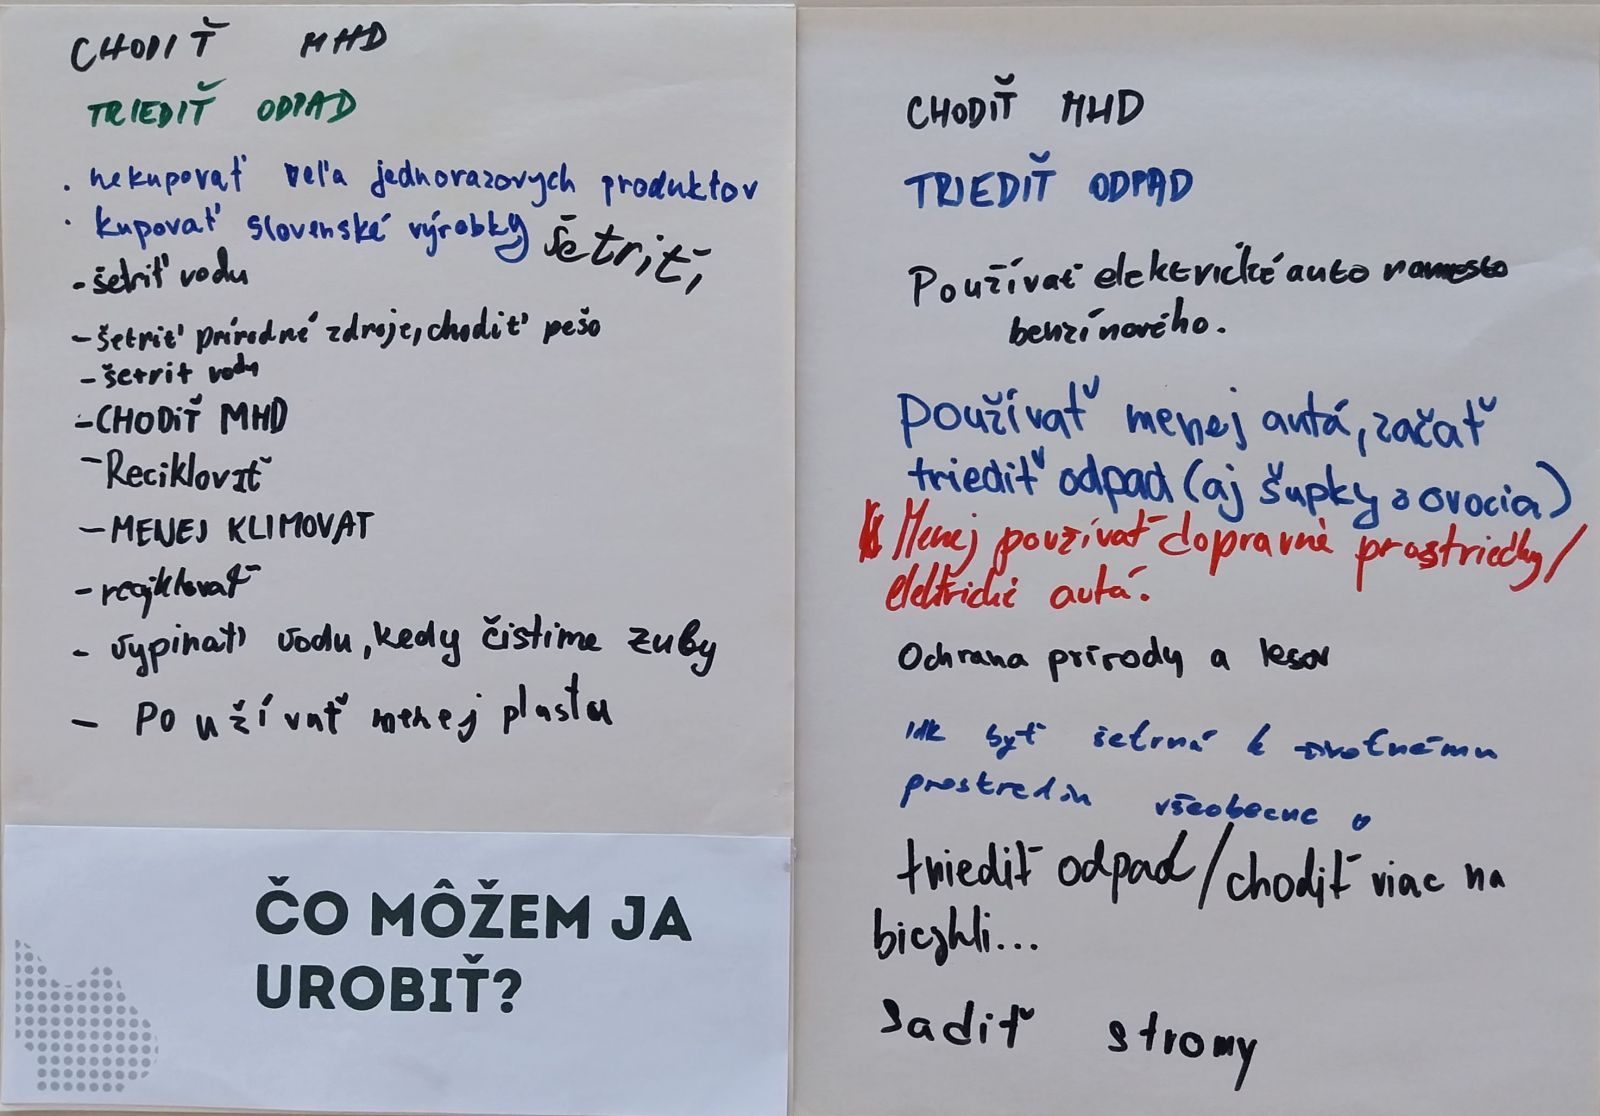 CHODIŤ MHD
TRIEDIŤ ODPAD
. nekupovať veľa jednorazových produktov
· kupovať slovenské výrobky
šetriť,
- šetriť vodu
- šetriť prírodné zdroje, chodiť pešo
- šetrit vodu
- CHODIŤ MHD
- Recikloviť
- MENEJ KLIMOVAT
- recyklovať
- vypínať vodu, kedy čistíme zuby
- Používať menej plastu
ČO MÔŽEM JA
UROBIŤ?
CHODIŤ MHD
TRIEDIŤ ODPAD
Používať elektrické auto namesto
benzínového.
používať menej autá, začať
triediť odpad (aj šupky z ovocia)
Menej používať dopravné prostriedky/
elektrické autá.
Ochrana prírody a lesov
idk byť šetrná k životnému
prostrediu všeobecne
triediť odpad/chodiť viac na
bicykli...
sadiť stromy